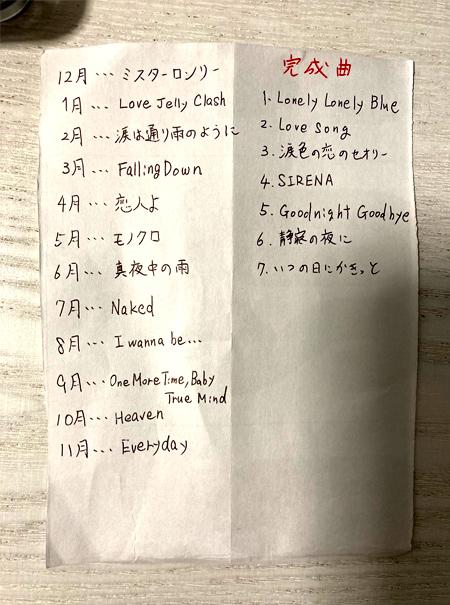 12月・・・ミスターロンリー
1月・・・Love Jelly Clash
2月・・・涙は通り雨のように
3月・・・Falling Down
4月・・・恋人よ
5月・・・モノクロ
6月・・・真夜中の雨
7月・・・Naked
8月・・・I wanna be...
9月・・・One More Time, Baby
True Mind
10月・・・Heaven
11月・・・Everyday
完成曲
1. Lonely Lonely Blue
2. Love Song
3. 涙色の恋のセオリー
4. SIRENA
5. Goodnight Goodbye
6. 静寂の夜に
7. いつの日にかきっと